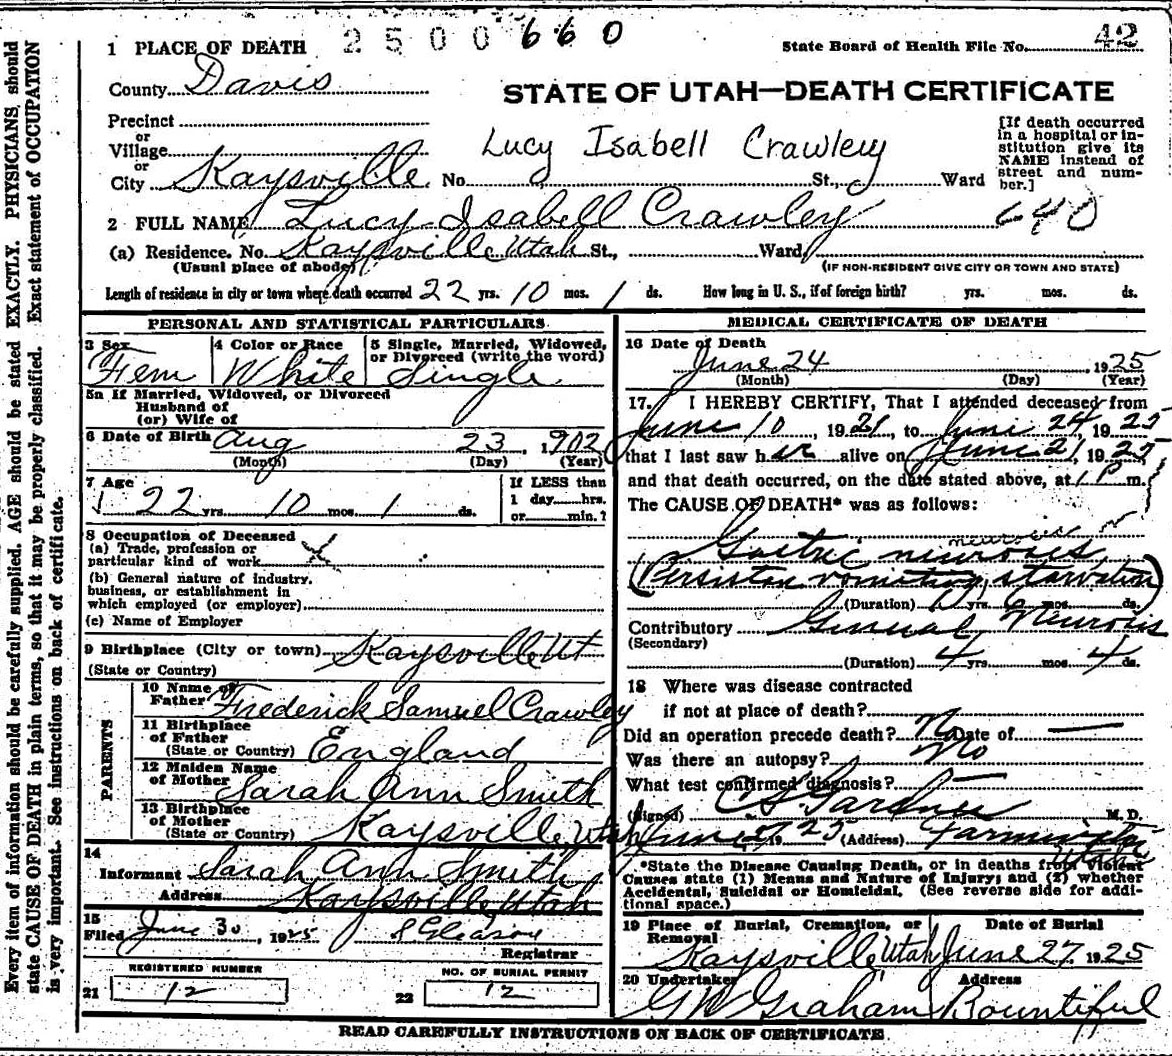 1 PLACE OF DEATH 2500660
State Board of Health File No. 42
County Davis
STATE OF UTAH—DEATH CERTIFICATE
Precinct
or
Village
or
City Kaysville No. St., Ward
Lucy Isabell Crawley
[If death occurred
in a hospital or in-
stitution give its
NAME instead of
street and num-
ber.]
2 FULL NAME Lucy Isabell Crawley
640
(a) Residence. No. Kaysville Utah St., Ward,
(Usual place of abode)
(IF NON-RESIDENT GIVE CITY OR TOWN AND STATE)
Length of residence in city or town where death occurred 22 yrs. 10 mos. 1 ds. How long in U. S., if of foreign birth? yrs. mos. ds.
PERSONAL AND STATISTICAL PARTICULARS
3 Sex
Fem
4 Color or Race
White
5 Single, Married, Widowed,
or Divorced (write the word)
Single
5a If Married, Widowed, or Divorced
Husband of
(or) Wife of
6 Date of Birth Aug 23, 1902
(Month) (Day) (Year)
7 Age
22 yrs 10 mos. 1 ds.
If LESS than
1 day hrs.
or min.?
8 Occupation of Deceased
(a) Trade, profession or
particular kind of work
(b) General nature of industry,
business, or establishment in
which employed (or employer)
(c) Name of Employer
9 Birthplace (City or town) Kaysville Ut
(State or Country)
PARENTS
10 Name of
Father Frederick Samuel Crawley
11 Birthplace
of Father
(State or Country) England
12 Maiden Name
of Mother Sarah Ann Smith
13 Birthplace
of Mother
(State or Country) Kaysville, Utah
14
Informant Sarah Ann Smith
Address Kaysville Utah
15
Filed June 30, 1925 S Gleason
Registrar
REGISTERED NUMBER
21 12
NO. OF BURIAL PERMIT
22 12
MEDICAL CERTIFICATE OF DEATH
16 Date of Death
June 24 1925
(Month) (Day) (Year)
17. I HEREBY CERTIFY, That I attended deceased from
June 10, 1921, to June 24, 1925
that I last saw her alive on June 21, 1925,
and that death occurred, on the date stated above, at 1 P m.
The CAUSE OF DEATH* was as follows:
neurosis
Gastric neurosis
(Persistan vomiting, starvation)
(Duration) yrs. mos. ds.
Contributory General Neurosis
(Secondary)
(Duration) 4 yrs. mos. 4 ds.
18 Where was disease contracted
if not at place of death?
Did an operation precede death? No Date of —
Was there an autopsy? No
What test confirmed diagnosis? —
(Signed) Gardner M. D.
June 1925 (Address) Farmington
*State the Disease Causing Death, or in deaths from Violent
Causes state (1) Means and Nature of Injury; and (2) whether
Accidental, Suicidal or Homicidal. (See reverse side for addi-
tional space.)
19 Place of Burial, Cremation, or
Removal
Kaysville Utah
Date of Burial
June 27, 1925
20 Undertaker
GW Graham
Address
Bountiful
READ CAREFULLY INSTRUCTIONS ON BACK OF CERTIFICATE
Every item of information should be carefully supplied. AGE should be stated EXACTLY. PHYSICIANS, should
state CAUSE OF DEATH in plain terms, so that it may be properly classified. Exact statement of OCCUPATION
is very important. See instructions on back of certificate.